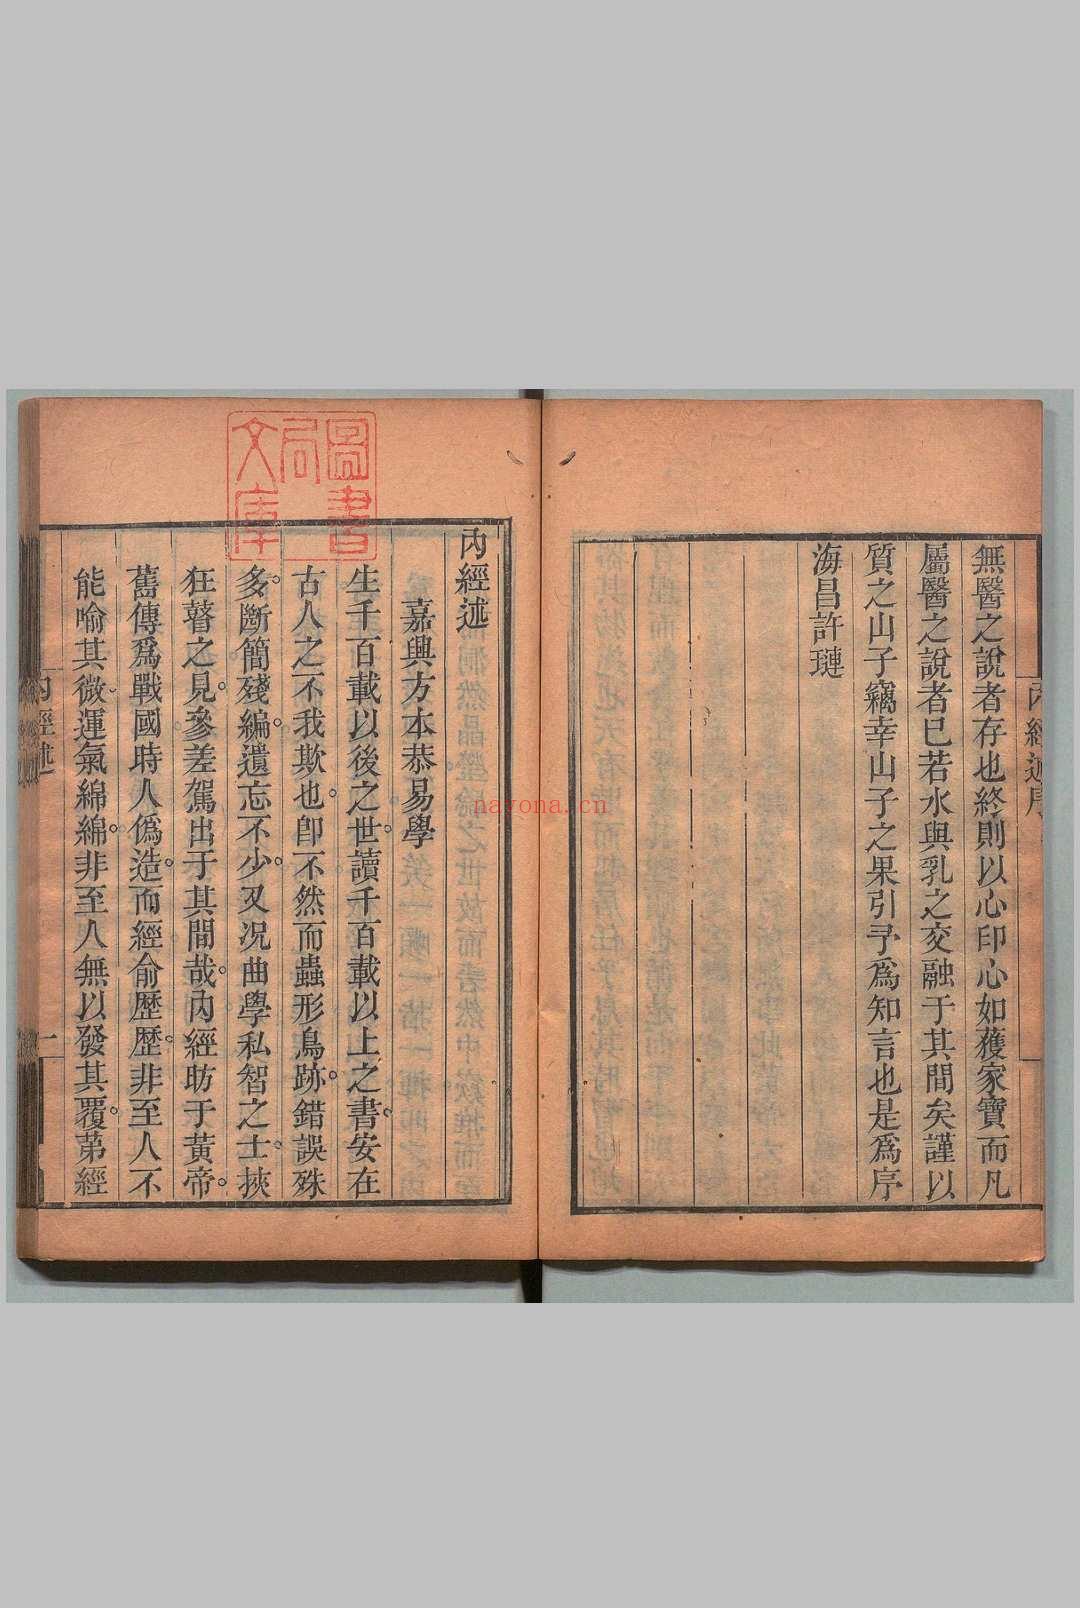 無醫之說者存也終則以心印心如獲家寶而凡
屬醫之說者已若水與乳之交融于其間矣謹以
質之山子竊幸山子之果引予為知言也是為序
海昌許璉
內經述序
圖書
局
文庫
內經述
嘉興方本恭易學
生千百載以後之世。讀千百載以上之書。安在
古人之不我欺也。卽不然而蟲形鳥跡。錯誤殊
多。斷簡殘編。遺忘不少。又況曲學私智之士。挾
狂瞽之見。參差駕出于其間哉。內經昉于黃帝。
舊傳爲戰國時人僞造。而經俞歷歷。非至人不
能喻其微。運氣綿綿。非至人無以發其覆。苐經
內經述
一
nayona.cn